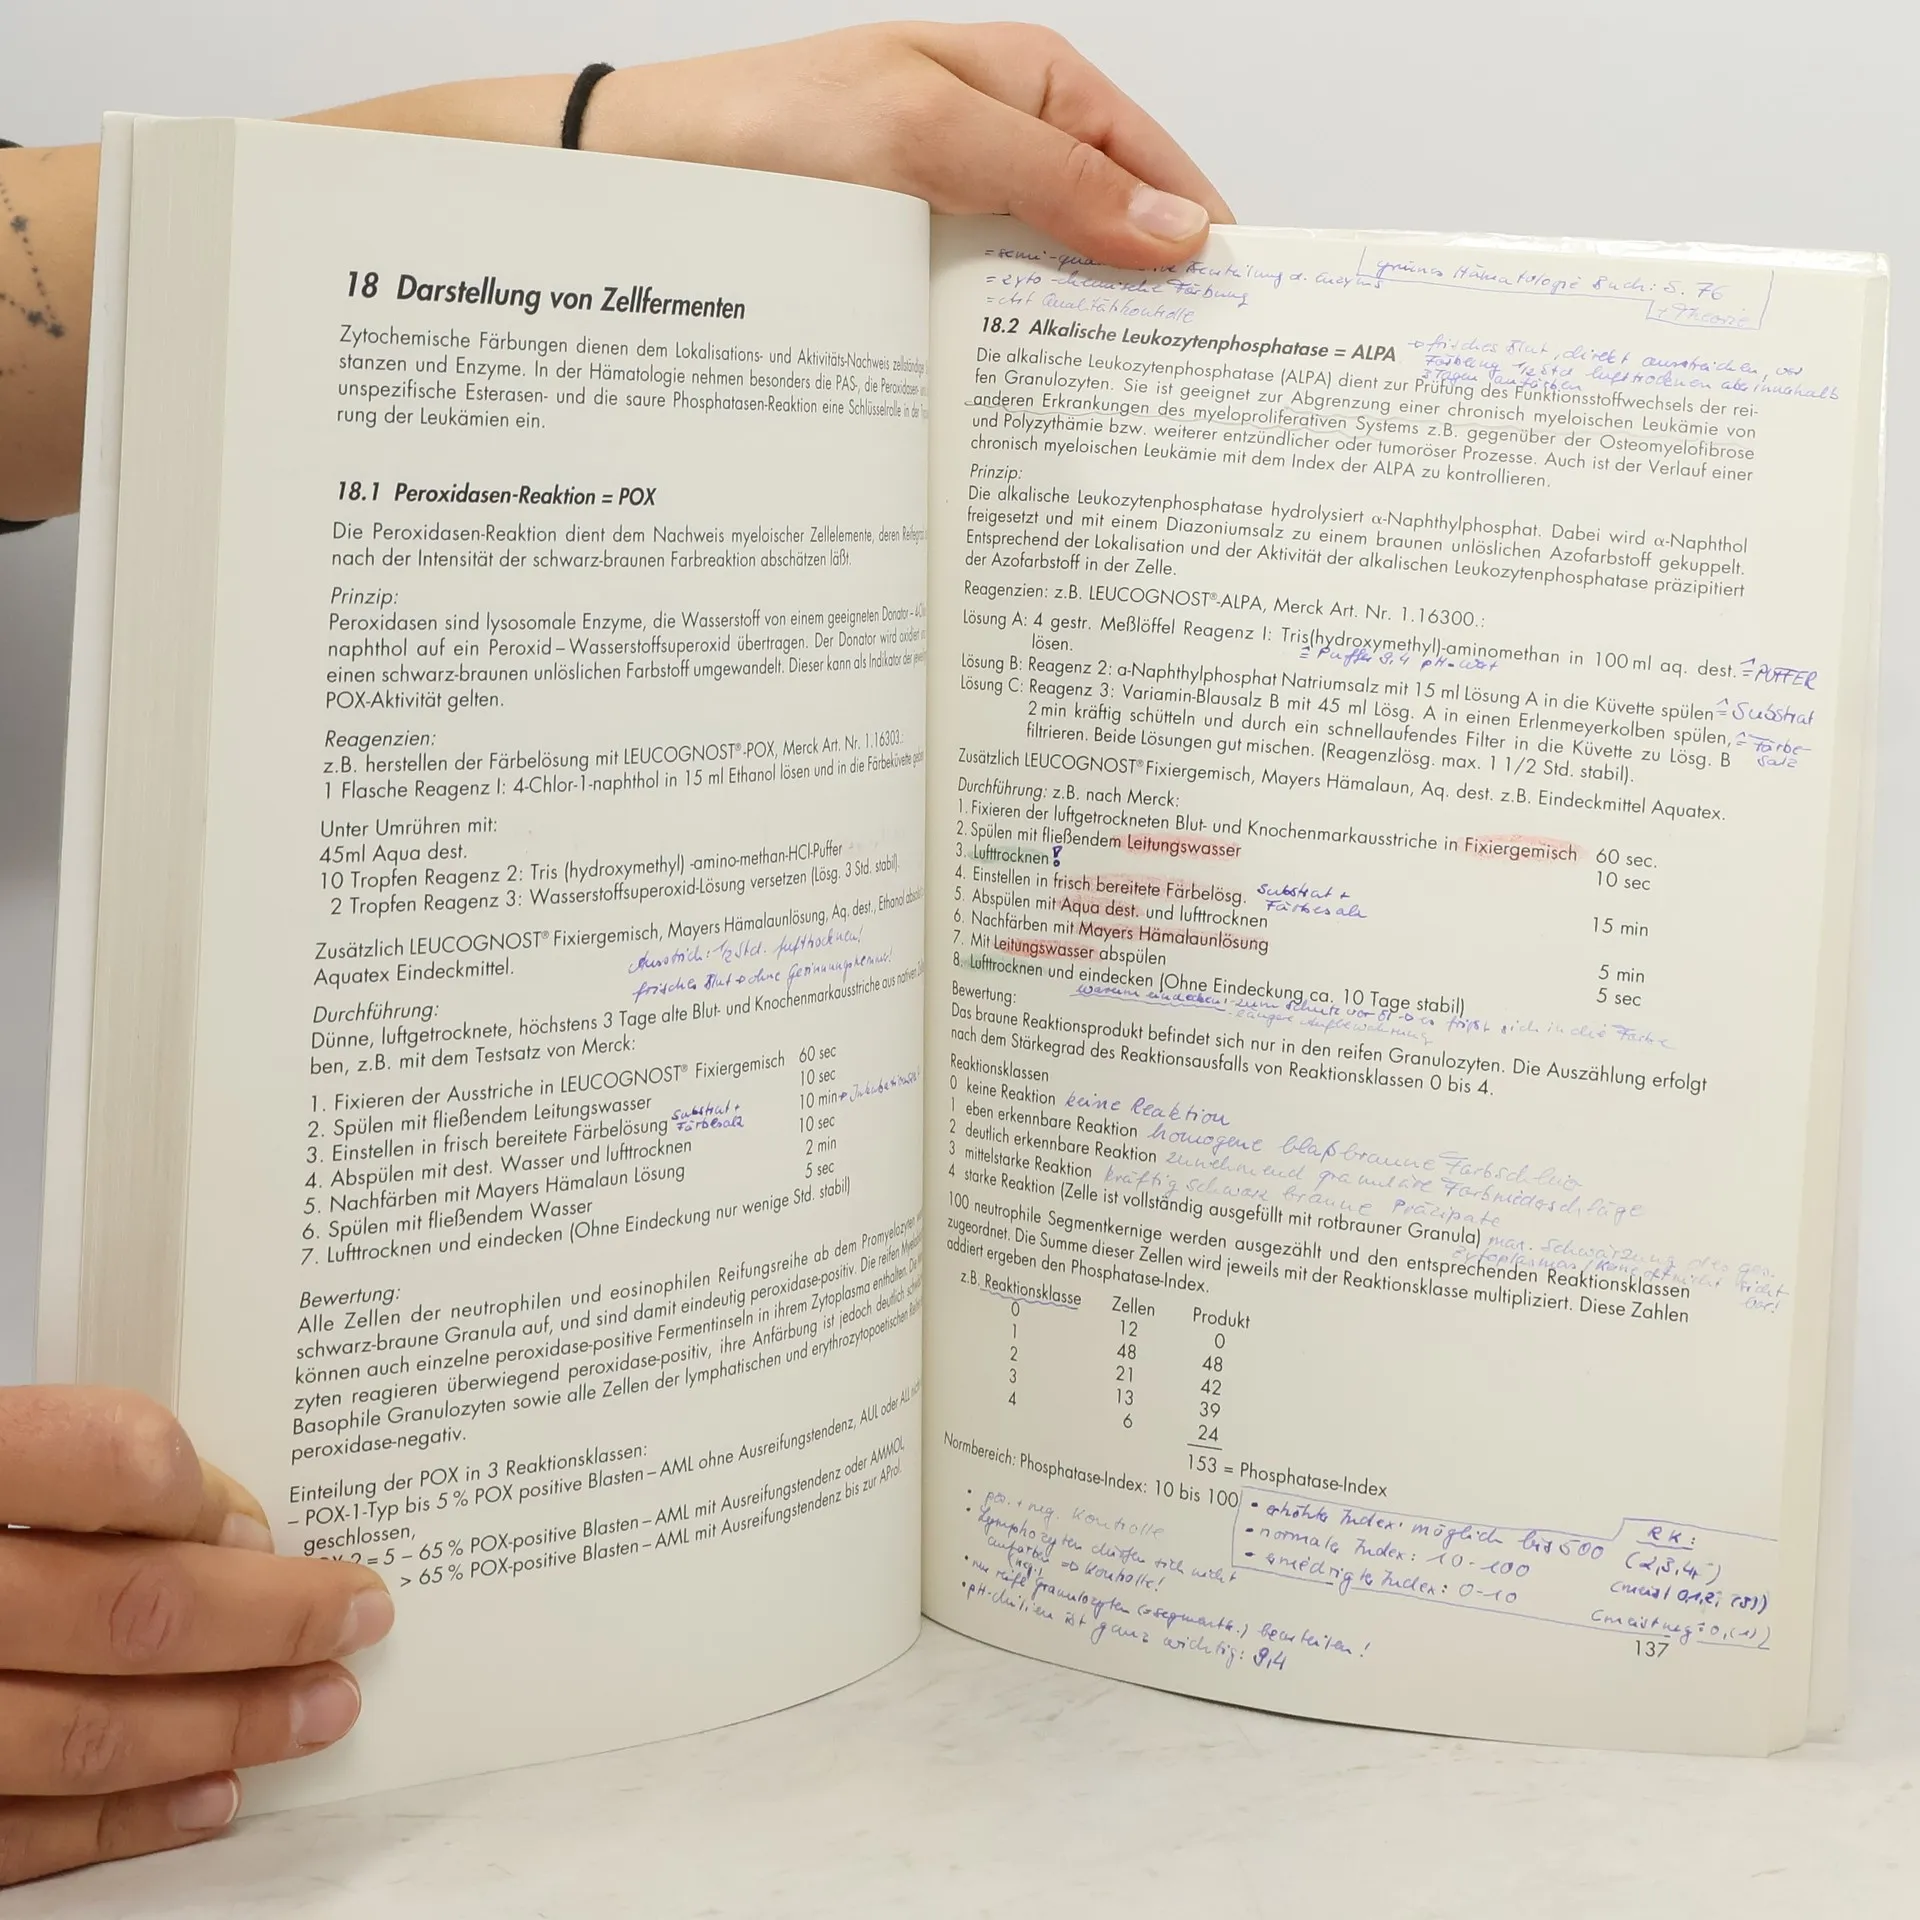 18 Darstellung von Zellfermenten
Zytochemische Färbungen dienen dem Lokalisations- und Aktivitäts-Nachweis zellständige
stanzen und Enzyme. In der Hämatologie nehmen besonders die PAS-, die Peroxidasen-
unspezifische Esterasen- und die saure Phosphatasen-Reaktion eine Schlüsselrolle in der
rung der Leukämien ein.
18.1 Peroxidasen-Reaktion = POX
Die Peroxidasen-Reaktion dient dem Nachweis myeloischer Zellelemente, deren Reifegrad
nach der Intensität der schwarz-braunen Farbreaktion abschätzen läßt.
Prinzip:
Peroxidasen sind lysosomale Enzyme, die Wasserstoff von einem geeigneten Donator –
naphthol auf ein Peroxid – Wasserstoffsuperoxid übertragen. Der Donator wird oxidiert
einen schwarz-braunen unlöslichen Farbstoff umgewandelt. Dieser kann als Indikator der
POX-Aktivität gelten.
Reagenzien:
z.B. herstellen der Färbelösung mit LEUCOGNOST®-POX, Merck Art. Nr. 1.16303.:
1 Flasche Reagenz I: 4-Chlor-1-naphthol in 15 ml Ethanol lösen und in die Färbeküvette
Unter Umrühren mit:
45ml Aqua dest.
10 Tropfen Reagenz 2: Tris (hydroxymethyl) -amino-methan-HCl-Puffer
2 Tropfen Reagenz 3: Wasserstoffsuperoxid-Lösung versetzen (Lösg. 3 Std. stabil).
Zusätzlich LEUCOGNOST® Fixiergemisch, Mayers Hämalaunlösung, Aq. dest., Ethanol
Aquatex Eindeckmittel.
Ausstrich: 1/2 Std. lufttrocknen!
frisches Blut ohne Gerinnungshemmer!
Durchführung:
Dünne, luftgetrocknete, höchstens 3 Tage alte Blut- und Knochenmarkausstriche aus nativem
ben, z.B. mit dem Testsatz von Merck:
1. Fixieren der Ausstriche in LEUCOGNOST® Fixiergemisch 60 sec
2. Spülen mit fließendem Leitungswasser 10 sec
3. Einstellen in frisch bereitete Färbelösung Substrat + Färbesalz 10 min
4. Abspülen mit dest. Wasser und lufttrocknen 10 sec
5. Nachfärben mit Mayers Hämalaun Lösung 2 min
6. Spülen mit fließendem Wasser 5 sec
7. Lufttrocknen und eindecken (Ohne Eindeckung nur wenige Std. stabil)
Bewertung:
Alle Zellen der neutrophilen und eosinophilen Reifungsreihe ab dem Promyelozyten
schwarz-braune Granula auf, und sind damit eindeutig peroxidase-positiv. Die reifen
können auch einzelne peroxidase-positive Fermentinseln in ihrem Zytoplasma enthalten.
zyten reagieren überwiegend peroxidase-positiv, ihre Anfärbung ist jedoch deutlich
Basophile Granulozyten sowie alle Zellen der lymphatischen und erythrozytopoetischen
peroxidase-negativ.
Einteilung der POX in 3 Reaktionsklassen:
– POX-1-Typ bis 5 % POX positive Blasten – AML ohne Ausreifungstendenz, AUL oder ALL
geschlossen,
2 = 5 – 65 % POX-positive Blasten – AML mit Ausreifungstendenz oder AMMOL
> 65 % POX-positive Blasten – AML mit Ausreifungstendenz bis zur AProl.
Beurteilung d. Enzyms
= zyto-chemische Färbung
= Art Qualitätskontrolle
grünes Hämatologie Buch: S. 76
+ Theorie
18.2 Alkalische Leukozytenphosphatase = ALPA
frisches Blut, direkt ausstreichen, vor
Färbung 1/2 Std lufttrocknen aber innerhalb
3 Tagen anfärben
Die alkalische Leukozytenphosphatase (ALPA) dient zur Prüfung des Funktionsstoffwechsels der rei-
fen Granulozyten. Sie ist geeignet zur Abgrenzung einer chronisch myeloischen Leukämie von
anderen Erkrankungen des myeloproliferativen Systems z.B. gegenüber der Osteomyelofibrose
und Polyzythämie bzw. weiterer entzündlicher oder tumoröser Prozesse. Auch ist der Verlauf einer
chronisch myeloischen Leukämie mit dem Index der ALPA zu kontrollieren.
Prinzip:
Die alkalische Leukozytenphosphatase hydrolysiert α-Naphthylphosphat. Dabei wird α-Naphthol
freigesetzt und mit einem Diazoniumsalz zu einem braunen unlöslichen Azofarbstoff gekuppelt.
Entsprechend der Lokalisation und der Aktivität der alkalischen Leukozytenphosphatase präzipitiert
der Azofarbstoff in der Zelle.
Reagenzien: z.B. LEUCOGNOST®-ALPA, Merck Art. Nr. 1.16300.:
Lösung A: 4 gestr. Meßlöffel Reagenz I: Tris(hydroxymethyl)-aminomethan in 100 ml aq. dest. ≙ PUFFER
lösen. ≙ Puffer 9,4 pH-Wert
Lösung B: Reagenz 2: a-Naphthylphosphat Natriumsalz mit 15 ml Lösung A in die Küvette spülen ≙ Substrat
Lösung C: Reagenz 3: Variamin-Blausalz B mit 45 ml Lösg. A in einen Erlenmeyerkolben spülen, ≙ Färbe-
2 min kräftig schütteln und durch ein schnellaufendes Filter in die Küvette zu Lösg. B salz
filtrieren. Beide Lösungen gut mischen. (Reagenzlösg. max. 1 1/2 Std. stabil).
Zusätzlich LEUCOGNOST® Fixiergemisch, Mayers Hämalaun, Aq. dest. z.B. Eindeckmittel Aquatex.
Durchführung: z.B. nach Merck:
1. Fixieren der luftgetrockneten Blut- und Knochenmarkausstriche in Fixiergemisch 60 sec.
2. Spülen mit fließendem Leitungswasser 10 sec
3. Lufttrocknen!
4. Einstellen in frisch bereitete Färbelösg. Substrat + Färbesalz 15 min
5. Abspülen mit Aqua dest. und lufttrocknen
6. Nachfärben mit Mayers Hämalaunlösung 5 min
7. Mit Leitungswasser abspülen 5 sec
8. Lufttrocknen und eindecken (Ohne Eindeckung ca. 10 Tage stabil)
warum eindecken: zum Schutz vor Öl → es frißt sich in die Farbe
längere Aufbewahrung
Bewertung:
Das braune Reaktionsprodukt befindet sich nur in den reifen Granulozyten. Die Auszählung erfolgt
nach dem Stärkegrad des Reaktionsausfalls von Reaktionsklassen 0 bis 4.
Reaktionsklassen
0 keine Reaktion keine Reaktion
1 eben erkennbare Reaktion homogene blaßbraune
2 deutlich erkennbare Reaktion zunehmend granuläre Farbniederschläge
3 mittelstarke Reaktion kräftig schwarz braune Präzipate
4 starke Reaktion (Zelle ist vollständig ausgefüllt mit rotbrauner Granula) max. Schwärzung des ges.
100 neutrophile Segmentkernige werden ausgezählt und den entsprechenden Reaktionsklassen
zugeordnet. Die Summe dieser Zellen wird jeweils mit der Reaktionsklasse multipliziert. Diese Zahlen
addiert ergeben den Phosphatase-Index.
z.B. Reaktionsklasse Zellen Produkt
0 12 0
1 48 48
2 21 42
3 13 39
4 6 24
153 = Phosphatase-Index
Normbereich: Phosphatase-Index: 10 bis 100
• pos. + neg. Kontrolle
• Lymphozyten dürfen sich nicht
anfärben ⇒ Kontrolle!
(neg.)
• nur reife Granulozyten (=segmentk.) beurteilen!
• pH-Milieu ist ganz wichtig: 9,4
RK:
• erhöhter Index: möglich bis 500 (2,3,4)
• normaler Index: 10-100 (meist 0,1,2; (3))
• erniedrigter Index: 0-10 (meist neg: 0, (1))
137